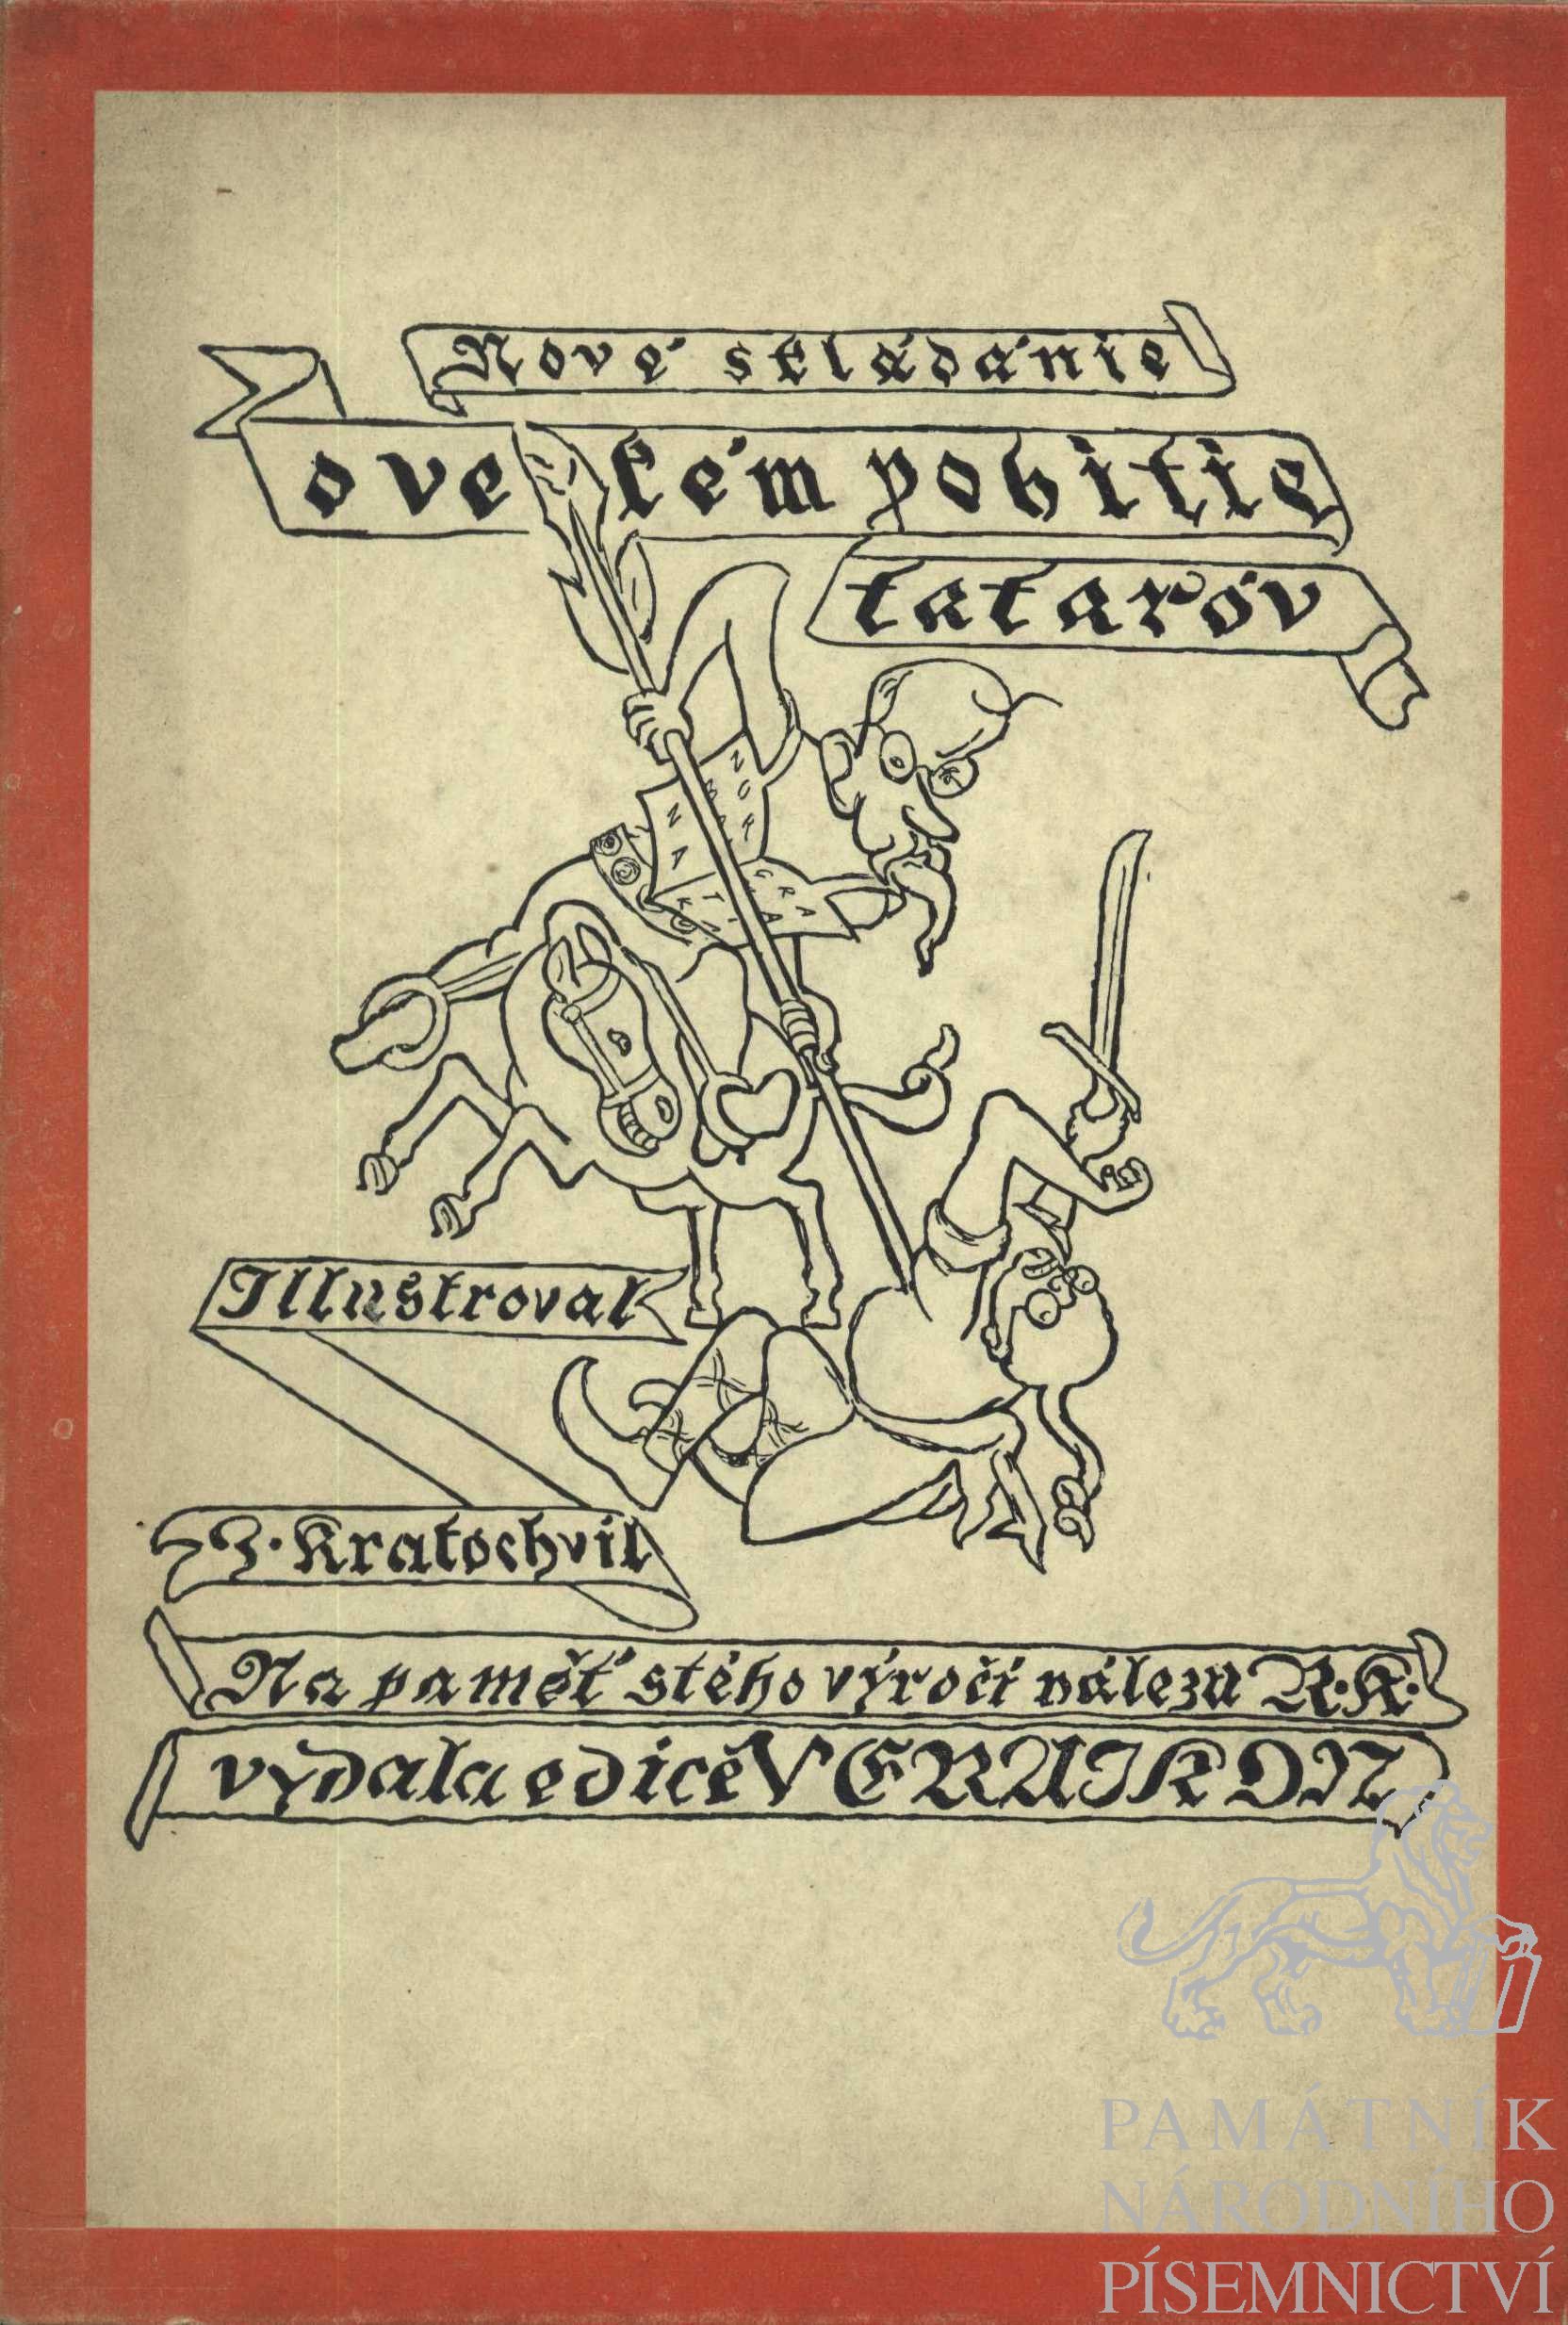 Nové skládánie
o velkém pobitie
tataróv
Illustroval
Z. Kratochvíl
Na paměť stého výročí nálezu R.K.
vydala edicě VERAIKON
PAMÁTNÍK
NÁRODNÍHO
PÍSEMNICTVÍ